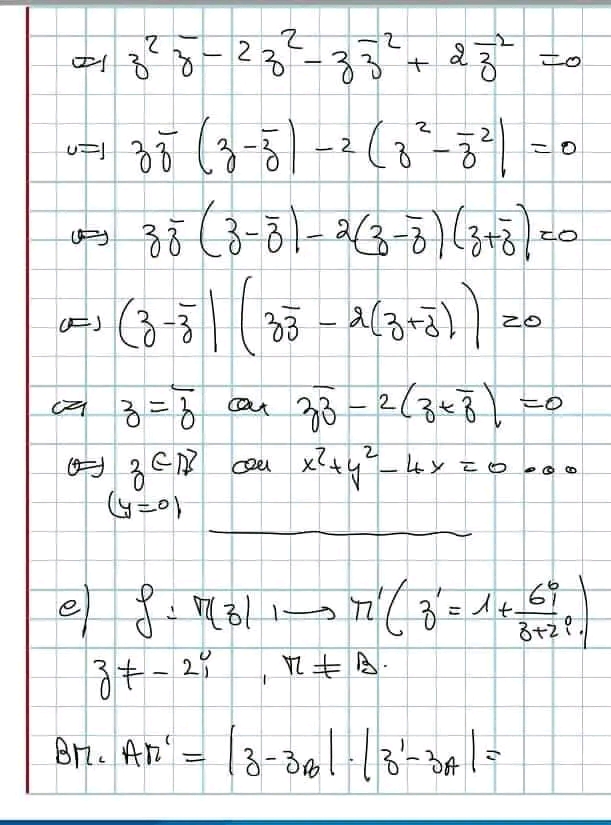 ⇔ z² z̄ - 2z² - z z̄² + 2 z̄² = 0
⇔ z z̄ (z - z̄) - 2(z² - z̄²) = 0
⇔ z z̄ (z - z̄) - 2(z - z̄)(z + z̄) = 0
⇔ (z - z̄)(z z̄ - 2(z + z̄)) = 0
⇔ z = z̄ ou z z̄ - 2(z + z̄) = 0
⇔ z ∈ ℝ ou x² + y² - 4x = 0 ...
(y = 0)
e) f : M(z) ⟼ M'(z' = 1 + 6i/(z+2i))
z ≠ -2i , M ≠ B.
BM. AM' = |z - z_B| . |z' - z_A| =